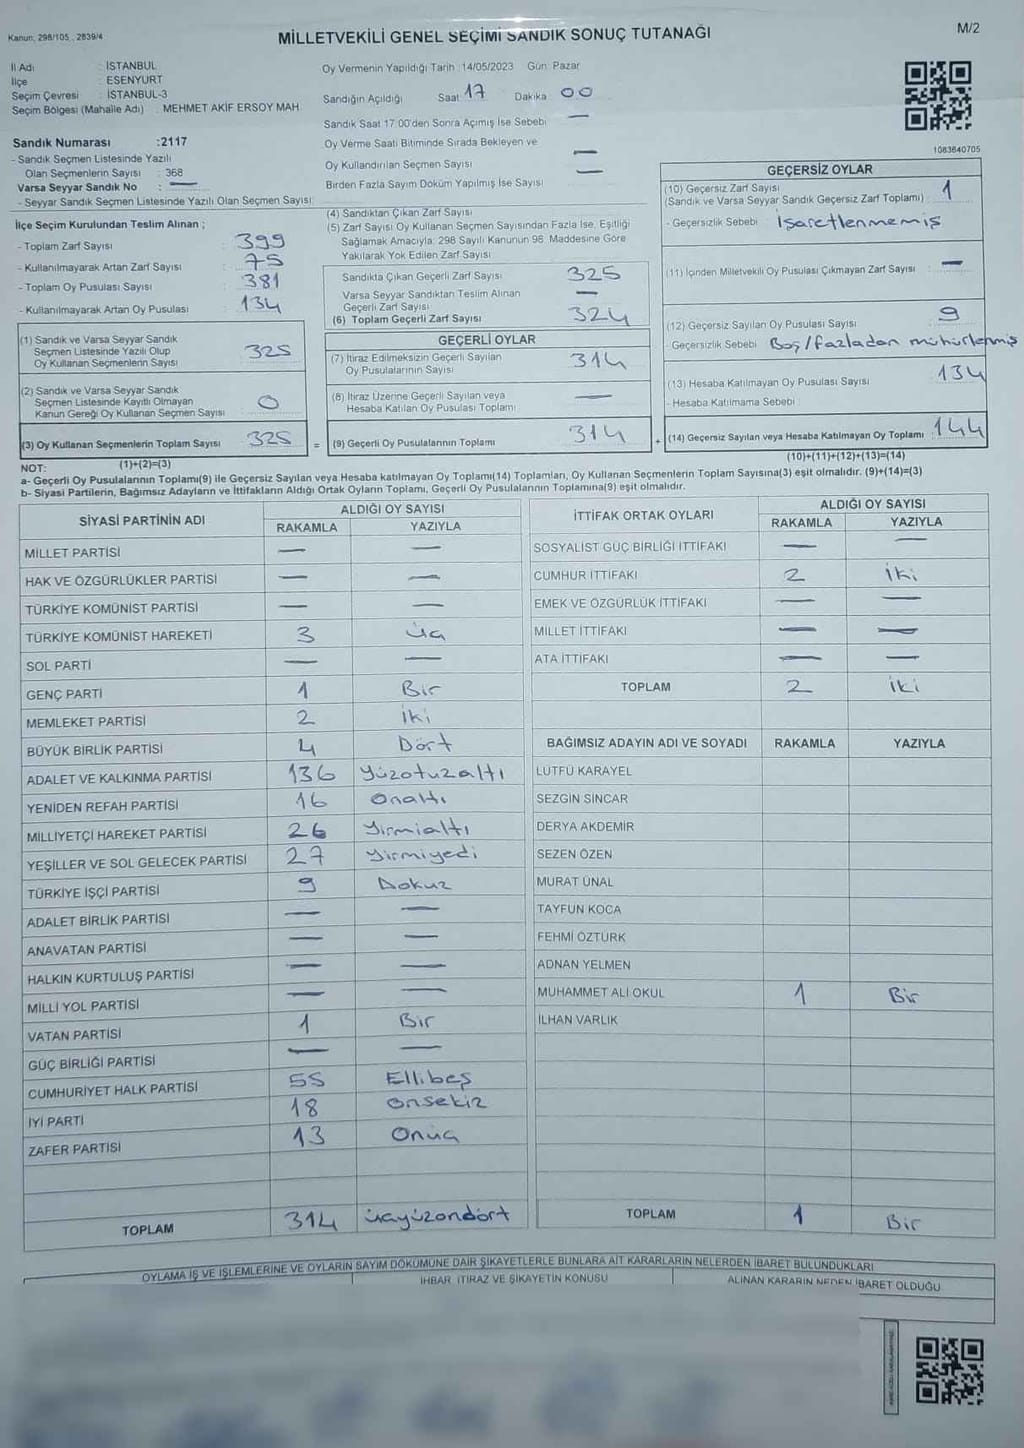 Kanun, 298/105 , 2839/4
MİLLETVEKİLİ GENEL SEÇİMİ SANDIK SONUÇ TUTANAĞI
M/2
İl Adı : İSTANBUL
İlçe : ESENYURT
Seçim Çevresi : İSTANBUL-3
Seçim Bölgesi (Mahalle Adı) : MEHMET AKİF ERSOY MAH.
Oy Vermenin Yapıldığı Tarih :14/05/2023 Gün: Pazar
Sandığın Açıldığı Saat 17 Dakika 00
Sandık Saat 17.00'den Sonra Açımış İse Sebebi —
Oy Verme Saati Bitiminde Sırada Bekleyen ve
Oy Kullandırılan Seçmen Sayısı —
Birden Fazla Sayım Döküm Yapılmış İse Sayısı —
1083840705
Sandık Numarası :2117
- Sandık Seçmen Listesinde Yazılı
Olan Seçmenlerin Sayısı : 368
Varsa Seyyar Sandık No : —
- Seyyar Sandık Seçmen Listesinde Yazılı Olan Seçmen Sayısı:
İlçe Seçim Kurulundan Teslim Alınan ;
- Toplam Zarf Sayısı : 399
- Kullanılmayarak Artan Zarf Sayısı : 75
- Toplam Oy Pusulası Sayısı : 381
- Kullanılmayarak Artan Oy Pusulası : 134
(1) Sandık ve Varsa Seyyar Sandık
Seçmen Listesinde Yazılı Olup
Oy Kullanan Seçmenlerin Sayısı 325
(2) Sandık ve Varsa Seyyar Sandık
Seçmen Listesinde Kayıtlı Olmayan
Kanun Gereği Oy Kullanan Seçmen Sayısı 0
(3) Oy Kullanan Seçmenlerin Toplam Sayısı 325
(4) Sandıktan Çıkan Zarf Sayısı
(5) Zarf Sayısı Oy Kullanan Seçmen Sayısından Fazla İse, Eşitliği
Sağlamak Amacıyla; 298 Sayılı Kanunun 98. Maddesine Göre
Yakılarak Yok Edilen Zarf Sayısı
Sandıkta Çıkan Geçerli Zarf Sayısı 325
Varsa Seyyar Sandıktan Teslim Alınan
Geçerli Zarf Sayısı —
(6) Toplam Geçerli Zarf Sayısı 324
GEÇERLİ OYLAR
(7) İtiraz Edilmeksizin Geçerli Sayılan
Oy Pusulalarının Sayısı 314
(8) İtiraz Üzerine Geçerli Sayılan veya
Hesaba Katılan Oy Pusulası Toplamı —
= (9) Geçerli Oy Pusulalarının Toplamı 314
GEÇERSİZ OYLAR
(10) Geçersiz Zarf Sayısı
(Sandık ve Varsa Seyyar Sandık Geçersiz Zarf Toplamı) : 1
- Geçersizlik Sebebi : İşaretlenmemiş
(11) İçinden Milletvekili Oy Pusulası Çıkmayan Zarf Sayısı : —
(12) Geçersiz Sayılan Oy Pusulası Sayısı : 9
- Geçersizlik Sebebi : Boş/fazladan mühürlenmiş
(13) Hesaba Katılmayan Oy Pusulası Sayısı : 134
- Hesaba Katılmama Sebebi :
+ (14) Geçersiz Sayılan veya Hesaba Katılmayan Oy Toplamı : 144
NOT: (1)+(2)=(3)
(10)+(11)+(12)+(13)=(14)
a- Geçerli Oy Pusulalarının Toplamı(9) ile Geçersiz Sayılan veya Hesaba katılmayan Oy Toplamı(14) Toplamları, Oy Kullanan Seçmenlerin Toplam Sayısına(3) eşit olmalıdır. (9)+(14)=(3)
b- Siyasi Partilerin, Bağımsız Adayların ve İttifakların Aldığı Ortak Oyların Toplamı, Geçerli Oy Pusulalarının Toplamına(9) eşit olmalıdır.
SİYASİ PARTİNİN ADI ALDIĞI OY SAYISI
RAKAMLA YAZIYLA
MİLLET PARTİSİ — —
HAK VE ÖZGÜRLÜKLER PARTİSİ — —
TÜRKİYE KOMÜNİST PARTİSİ — —
TÜRKİYE KOMÜNİST HAREKETİ 3 üç
SOL PARTİ — —
GENÇ PARTİ 1 Bir
MEMLEKET PARTİSİ 2 İki
BÜYÜK BİRLİK PARTİSİ 4 Dört
ADALET VE KALKINMA PARTİSİ 136 yüzotuzaltı
YENİDEN REFAH PARTİSİ 16 onaltı
MİLLİYETÇİ HAREKET PARTİSİ 26 yirmialtı
YEŞİLLER VE SOL GELECEK PARTİSİ 27 yirmiyedi
TÜRKİYE İŞÇİ PARTİSİ 9 Dokuz
ADALET BİRLİK PARTİSİ — —
ANAVATAN PARTİSİ — —
HALKIN KURTULUŞ PARTİSİ — —
MİLLİ YOL PARTİSİ — —
VATAN PARTİSİ 1 Bir
GÜÇ BİRLİĞİ PARTİSİ — —
CUMHURİYET HALK PARTİSİ 55 Ellibeş
İYİ PARTİ 18 onsekiz
ZAFER PARTİSİ 13 Onüç
TOPLAM 314 üçyüzondört
İTTİFAK ORTAK OYLARI ALDIĞI OY SAYISI
RAKAMLA YAZIYLA
SOSYALİST GÜÇ BİRLİĞİ İTTİFAKI — —
CUMHUR İTTİFAKI 2 İki
EMEK VE ÖZGÜRLÜK İTTİFAKI — —
MİLLET İTTİFAKI — —
ATA İTTİFAKI — —
TOPLAM 2 İki
BAĞIMSIZ ADAYIN ADI VE SOYADI RAKAMLA YAZIYLA
LÜTFÜ KARAYEL
SEZGİN SİNCAR
DERYA AKDEMİR
SEZEN ÖZEN
MURAT ÜNAL
TAYFUN KOCA
FEHMİ ÖZTÜRK
ADNAN YELMEN
MUHAMMET ALİ OKUL 1 Bir
İLHAN VARLIK
TOPLAM 1 Bir
OYLAMA İŞ VE İŞLEMLERİNE VE OYLARIN SAYIM DÖKÜMÜNE DAİR ŞİKAYETLERLE BUNLARA AİT KARARLARIN NELERDEN İBARET BULUNDUKLARI
İHBAR, İTİRAZ VE ŞİKAYETİN KONUSU ALINAN KARARIN NEDEN İBARET OLDUĞU